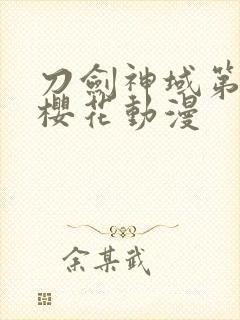 刀劍神域第
櫻花動漫
余某武